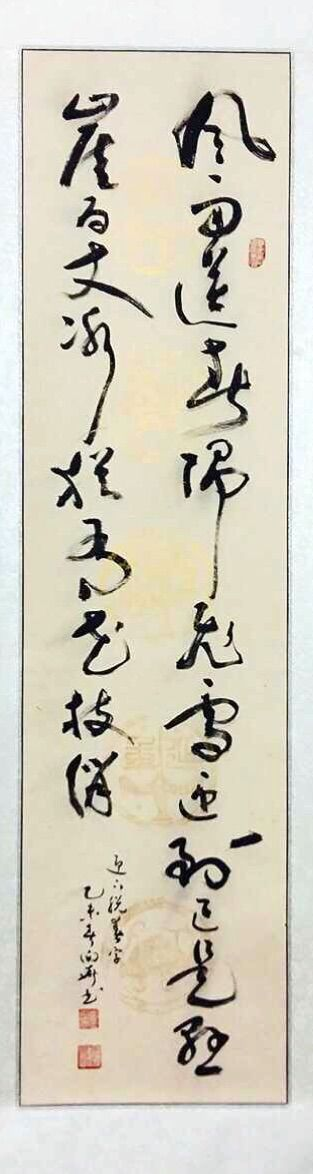 风雨送春归飞雪迎到已是悬
崖百丈冰犹有花枝俏
迎下脱春字
乙未年向书